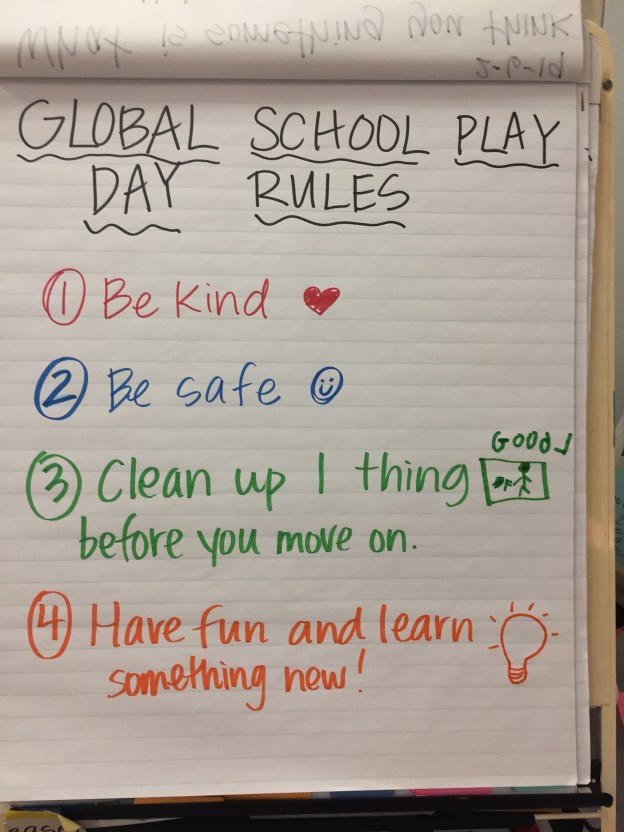 GLOBAL SCHOOL PLAY
DAY RULES
① Be Kind
② Be safe
GOOD
③ Clean up 1 thing
before you move on.
④ Have fun and learn
something new!